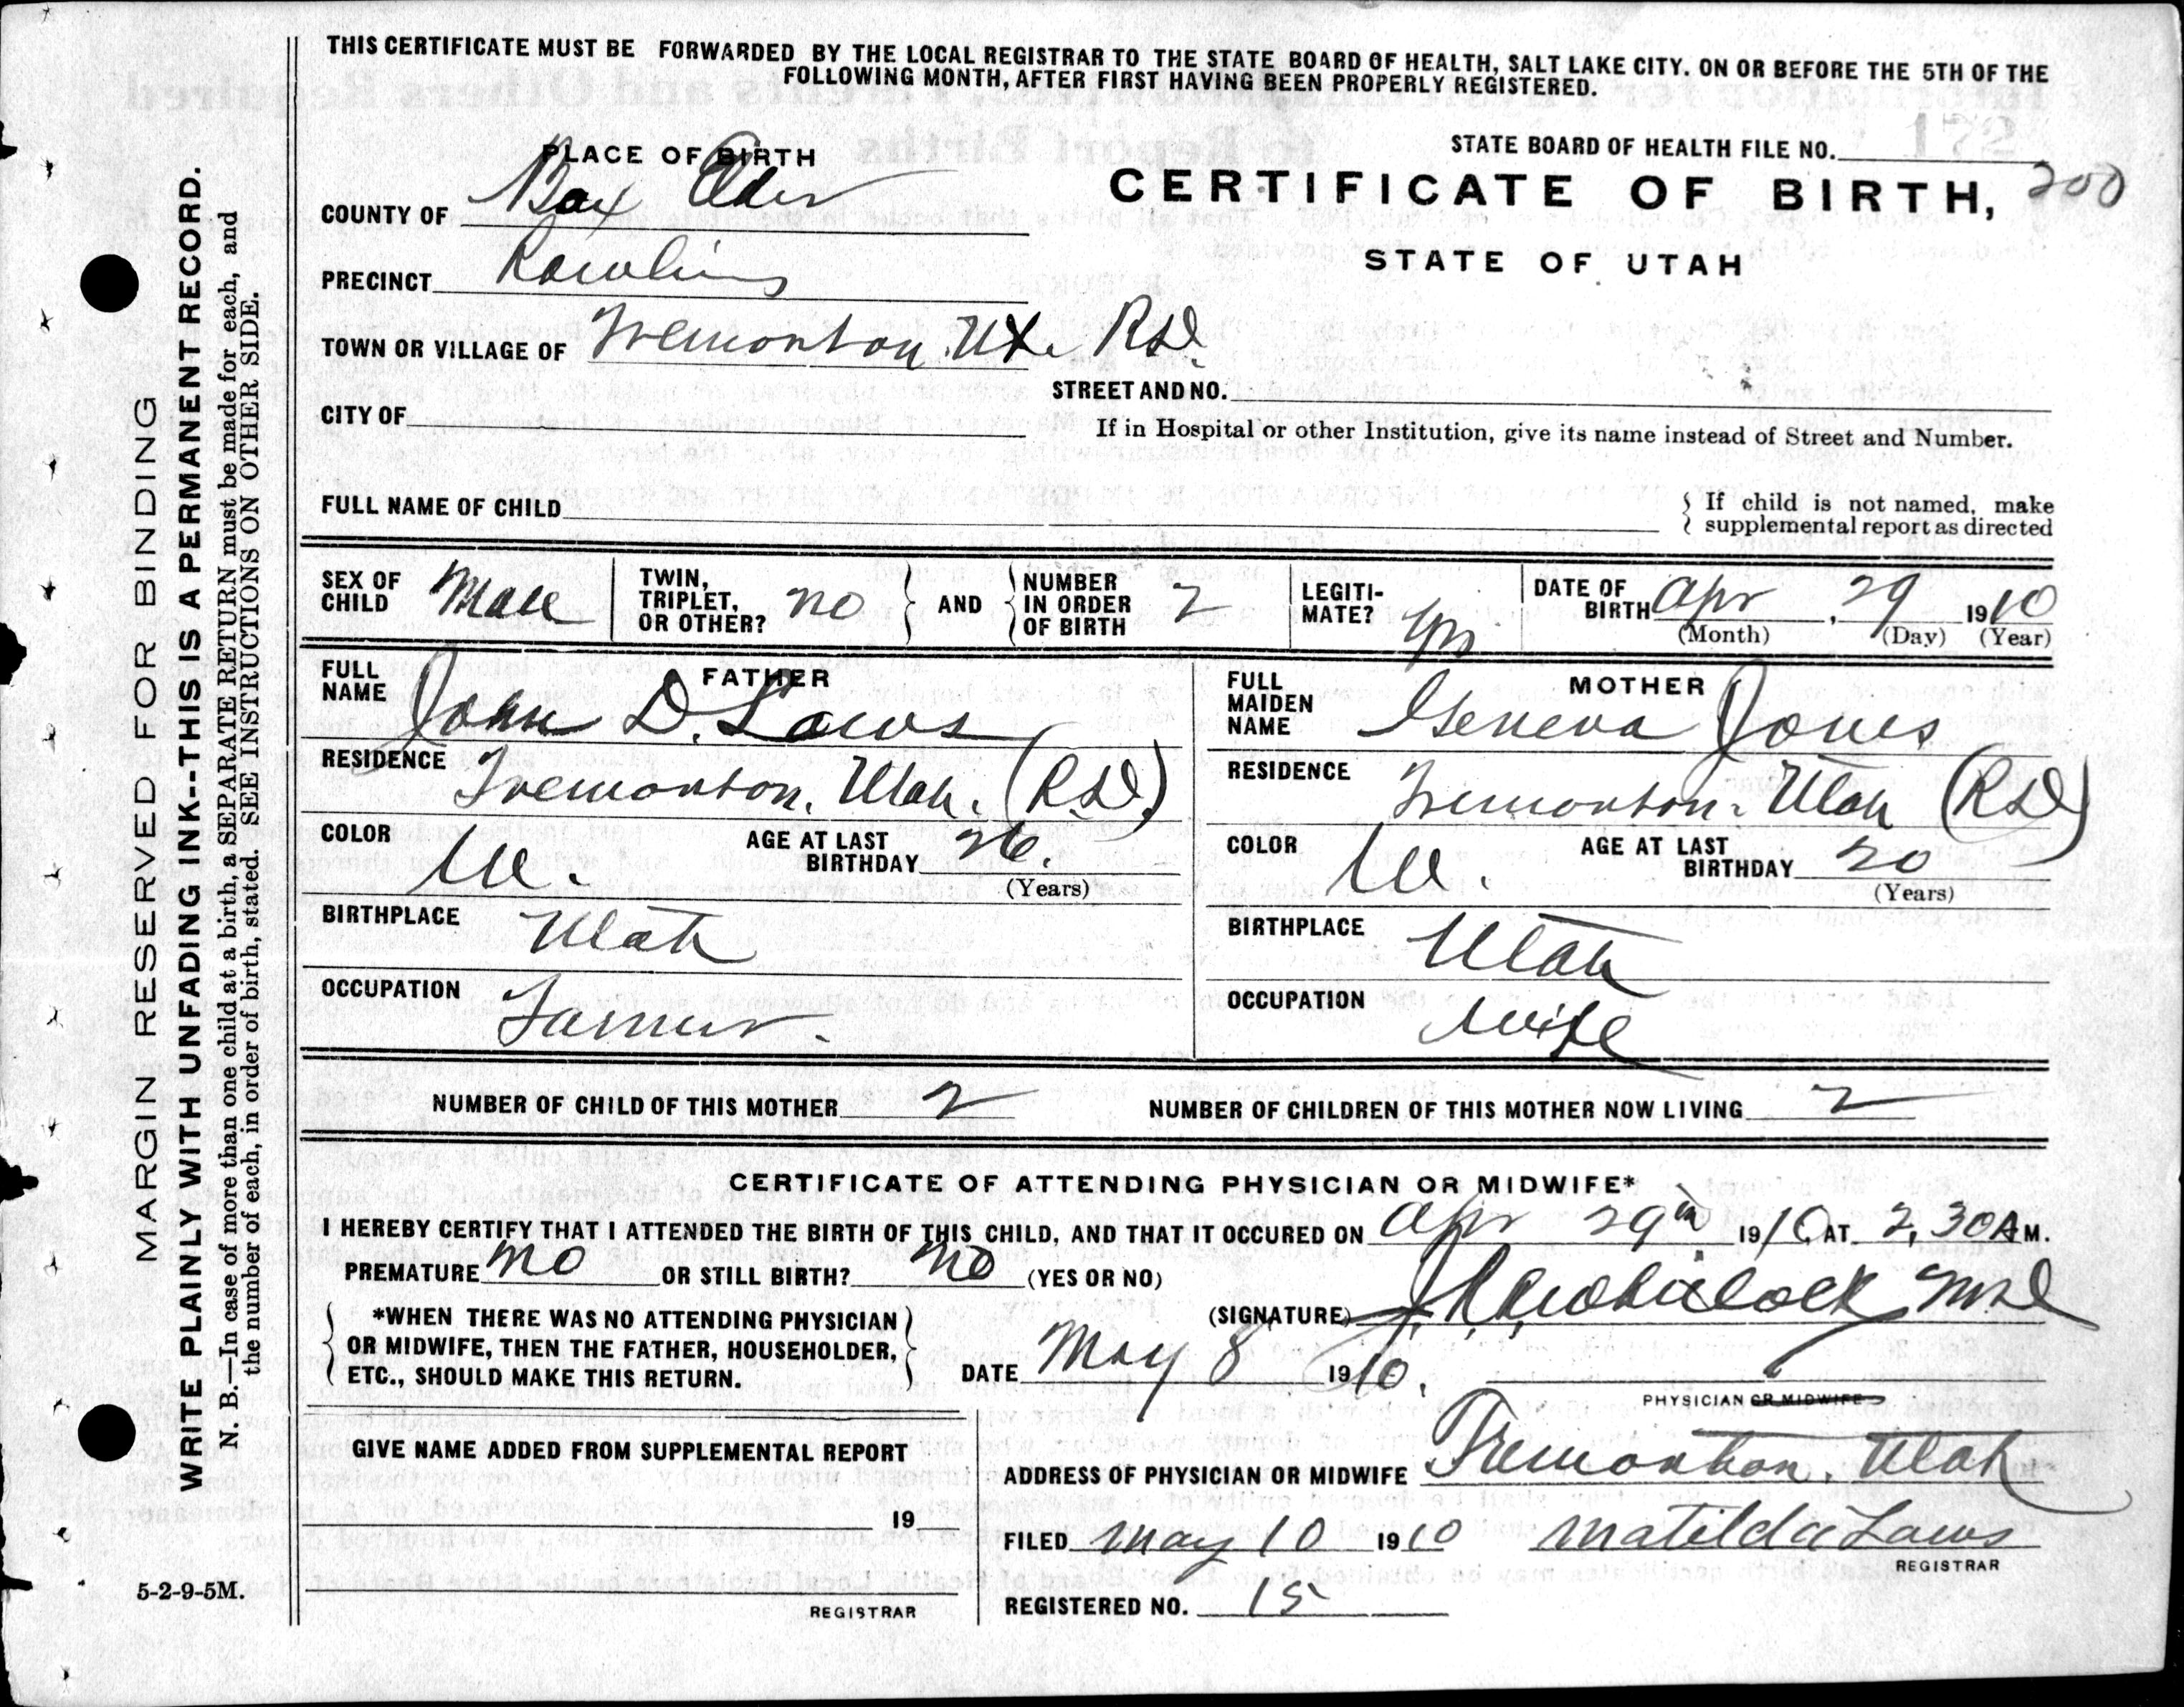 THIS CERTIFICATE MUST BE FORWARDED BY THE LOCAL REGISTRAR TO THE STATE BOARD OF HEALTH, SALT LAKE CITY. ON OR BEFORE THE 5TH OF THE
FOLLOWING MONTH, AFTER FIRST HAVING BEEN PROPERLY REGISTERED.
PLACE OF BIRTH
STATE BOARD OF HEALTH FILE NO.
172
COUNTY OF Box Elder
CERTIFICATE OF BIRTH, 200
PRECINCT Rawlins
STATE OF UTAH
TOWN OR VILLAGE OF Tremonton. Ut. RD.
STREET AND NO.
CITY OF
If in Hospital or other Institution, give its name instead of Street and Number.
FULL NAME OF CHILD
{ If child is not named, make
supplemental report as directed
SEX OF CHILD Male
TWIN, TRIPLET, OR OTHER? no } AND { NUMBER IN ORDER OF BIRTH 2
LEGITI-MATE? Yes
DATE OF BIRTH Apr. 29 1910
(Month) (Day) (Year)
FATHER
FULL NAME John D. Laws
RESIDENCE Tremonton. Utah. (RD.)
COLOR W. AGE AT LAST BIRTHDAY 26.
(Years)
BIRTHPLACE Utah
OCCUPATION Farmer.
MOTHER
FULL MAIDEN NAME Geneva Jones
RESIDENCE Tremonton. Utah (RD)
COLOR W. AGE AT LAST BIRTHDAY 20
(Years)
BIRTHPLACE Utah
OCCUPATION Wife
NUMBER OF CHILD OF THIS MOTHER 2 NUMBER OF CHILDREN OF THIS MOTHER NOW LIVING 2
CERTIFICATE OF ATTENDING PHYSICIAN OR MIDWIFE*
I HEREBY CERTIFY THAT I ATTENDED THE BIRTH OF THIS CHILD, AND THAT IT OCCURED ON Apr 29th 1910, AT 2,30 A M.
PREMATURE no OR STILL BIRTH? no (YES OR NO)
(SIGNATURE) MD
{ *WHEN THERE WAS NO ATTENDING PHYSICIAN
OR MIDWIFE, THEN THE FATHER, HOUSEHOLDER,
ETC., SHOULD MAKE THIS RETURN. }
DATE May 8 1910.
PHYSICIAN OR MIDWIFE
GIVE NAME ADDED FROM SUPPLEMENTAL REPORT
19
REGISTRAR
ADDRESS OF PHYSICIAN OR MIDWIFE Tremonton. Utah
FILED May 10 1910 Matilda Laws
REGISTRAR
REGISTERED NO. 15
MARGIN RESERVED FOR BINDING
WRITE PLAINLY WITH UNFADING INK--THIS IS A PERMANENT RECORD.
N. B.—In case of more than one child at a birth, a SEPARATE RETURN must be made for each, and
the number of each, in order of birth, stated. SEE INSTRUCTIONS ON OTHER SIDE.
5-2-9-5M.